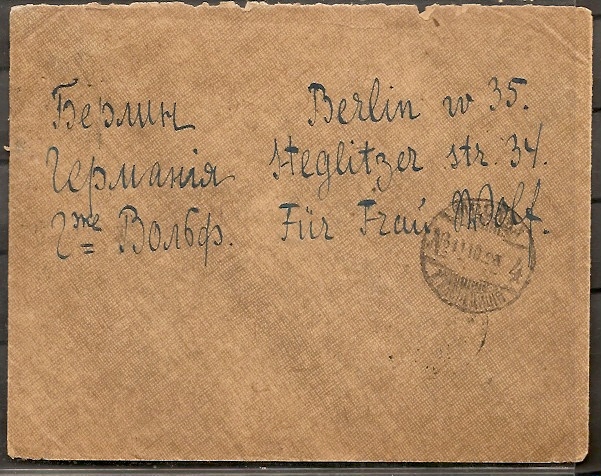 Берлин
Германія
Гже Вольф.
Berlin w 35.
Steglitzer str. 34.
Für Frau Wolf.
4